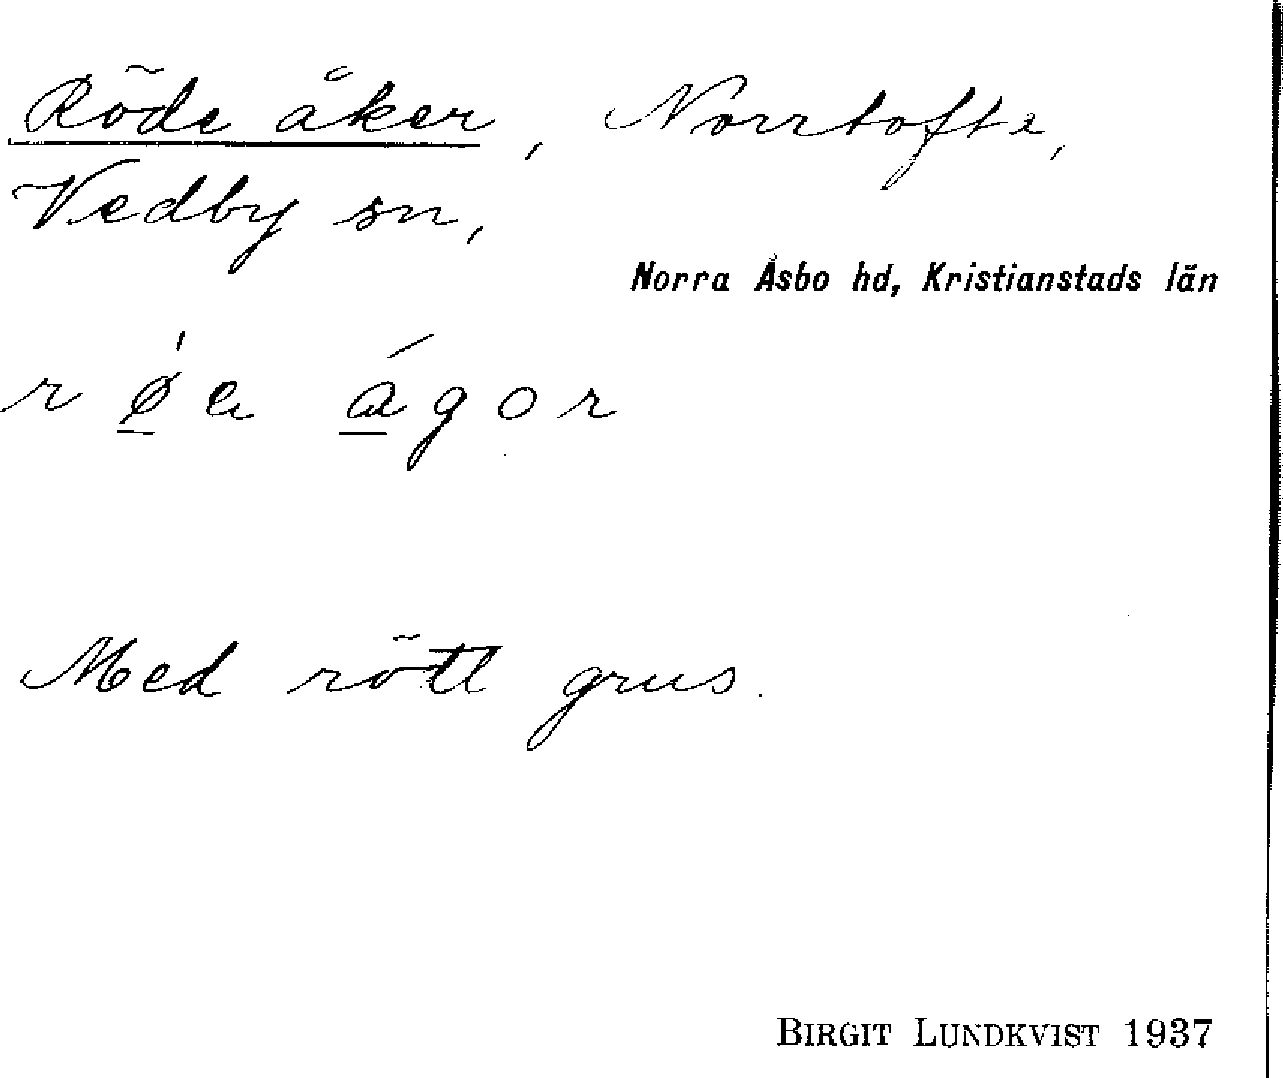 Röde åker, Norrtofte,
Vedby sn,
Norra Åsbo hd, Kristianstads län
r ǿ̱ e á̱ g o r
Med rött grus.
BIRGIT LUNDKVIST 1937